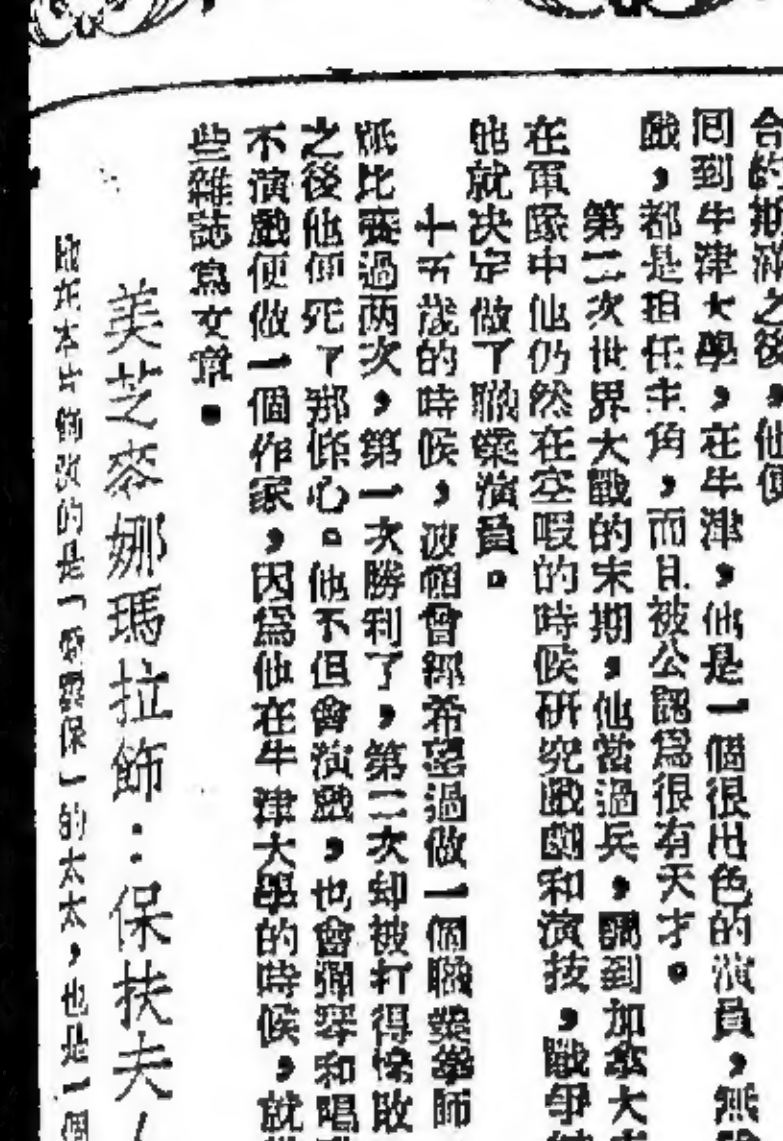 合約期滿之後，他便
回到牛津大學，在牛津，他是一個很出色的演員，無
戲，都是担任主角，而且被公認爲很有天才。
第二次世界大戰的末期，他當過兵，調到加拿大
在軍隊中他仍然在空暇的時候研究戲劇和演技，戰爭
他就决定做了職業演員。
十五歲的時候，波頓曾經希望過做一個職業拳師
派比賽過两次，第一次勝利了，第二次却被打得慘敗
之後他便死了那條心。他不但會演戲，也會彈琴和唱
不演戲便做一個作家，因爲他在牛津大學的時候，就
些雜誌寫文章。
美芝麥娜瑪拉飾：保扶夫
她在本片飾演的是「保」的太太，也是一個